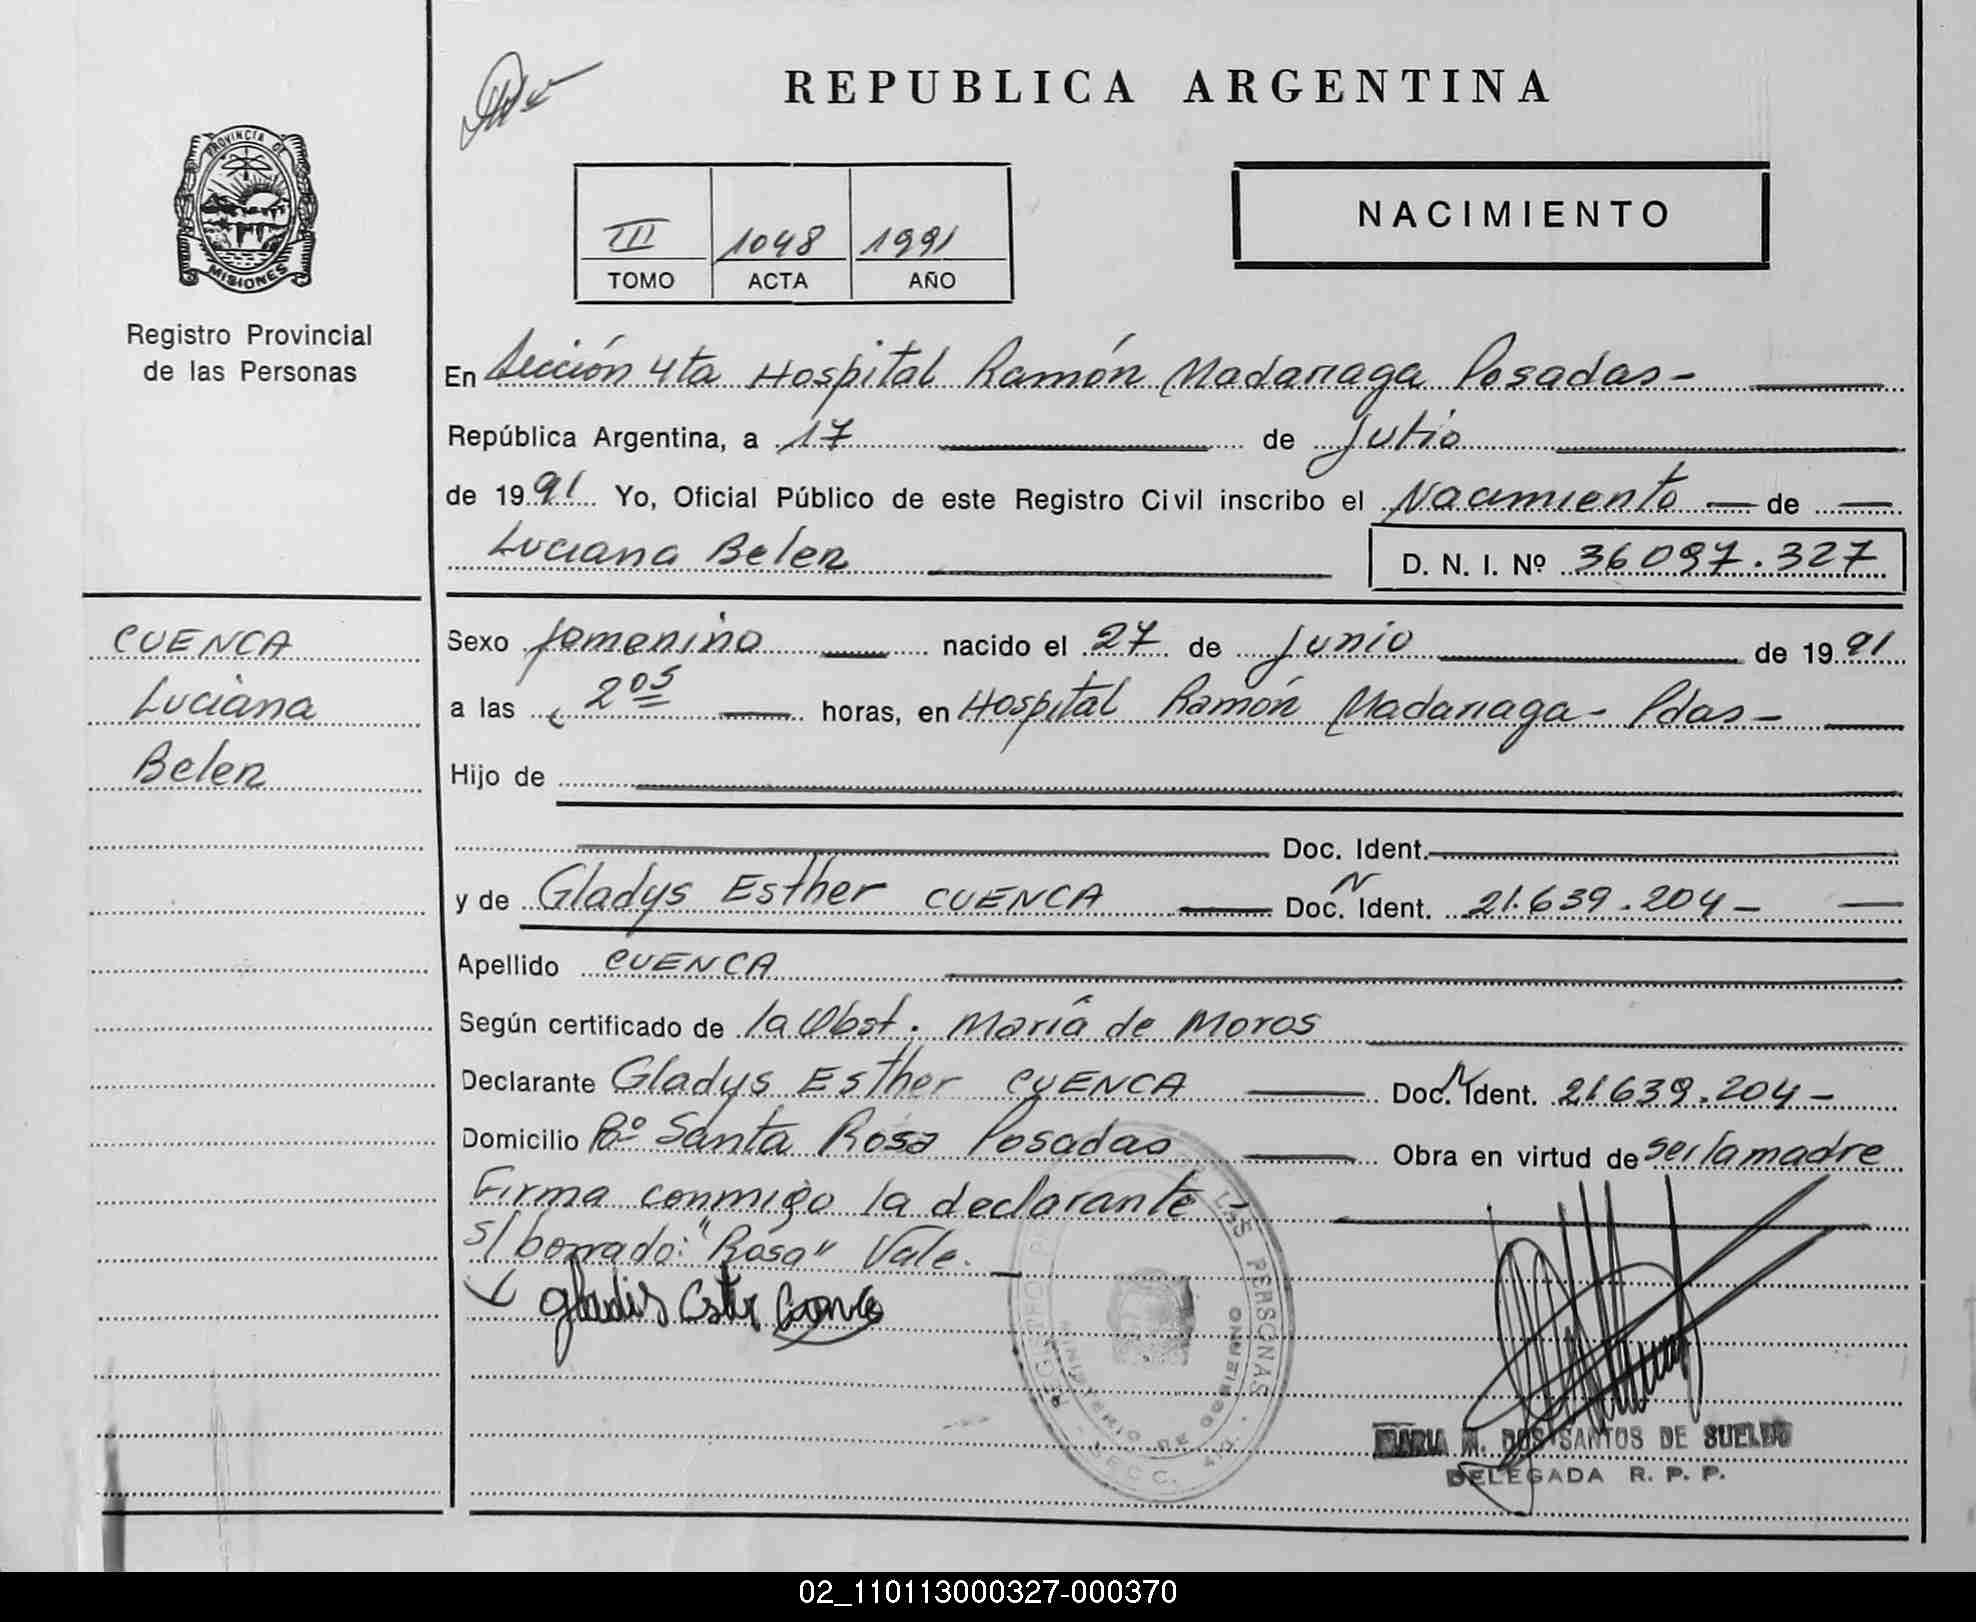 REPUBLICA ARGENTINA
PROVINCIA DE MISIONES
Registro Provincial
de las Personas
III 1048 1991
TOMO ACTA AÑO
NACIMIENTO
En Sección 4ta Hospital Ramón Madariaga Posadas-
República Argentina, a 17 de Julio
de 1991 Yo, Oficial Público de este Registro Civil inscribo el Nacimiento de
Luciana Belen D. N. I. Nº 36097.327
CUENCA
Luciana
Belen
Sexo femenino nacido el 27 de Junio de 1991
a las 2 05 horas, en Hospital Ramón Madariaga - Pdas-
Hijo de
Doc. Ident.
y de Gladys Esther CUENCA Doc. N Ident. 21.639.204-
Apellido CUENCA
Según certificado de la Obst. María de Moros
Declarante Gladys Esther CUENCA Doc. N Ident. 21.639.204-
Domicilio Bº Santa Rosa Posadas Obra en virtud de ser la madre
Firma conmigo la declarante -
s/borrado: "Rosa" Vale.
REGISTRO LAS PERSONAS
MINISTERIO DE GOBIERNO
SECC. 4a.
MARIA M. DOS SANTOS DE SUELDO
DELEGADA R. P. P.
02_110113000327-000370